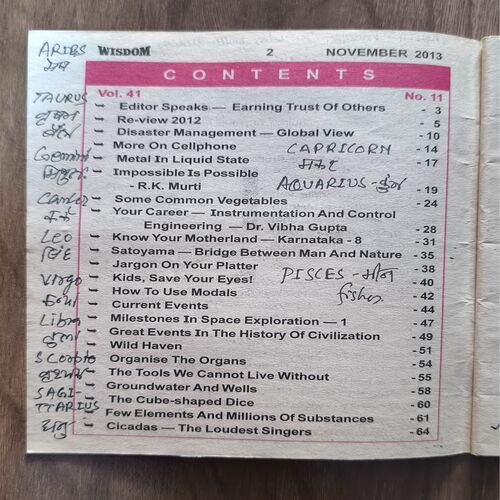 WISDOM 2 NOVEMBER 2013
CONTENTS
Vol. 41 No. 11
Editor Speaks — Earning Trust Of Others - 3
Re-view 2012 - 5
Disaster Management — Global View - 10
More On Cellphone - 14
Metal In Liquid State - 17
Impossible Is Possible
- R.K. Murti - 19
Some Common Vegetables - 24
Your Career — Instrumentation And Control
Engineering — Dr. Vibha Gupta - 28
Know Your Motherland — Karnataka - 8 - 31
Satoyama — Bridge Between Man And Nature - 35
Jargon On Your Platter - 38
Kids, Save Your Eyes! - 40
How To Use Modals - 42
Current Events - 44
Milestones In Space Exploration — 1 - 47
Great Events In The History Of Civilization - 49
Wild Haven - 51
Organise The Organs - 54
The Tools We Cannot Live Without - 55
Groundwater And Wells - 58
The Cube-shaped Dice - 60
Few Elements And Millions Of Substances - 61
Cicadas — The Loudest Singers - 64
ARIES
मेष
TAURUS
वृषभ
Gemini
मिथुन
Cancer
कर्क
LEO
सिंह
Virgo
कन्या
Libra
तुला
SCORPIO
वृश्चिक
SAGI-
TTARIUS
धनु
CAPRICORN
मकर
AQUARIUS - कुंभ
PISCES - मीन
fishes